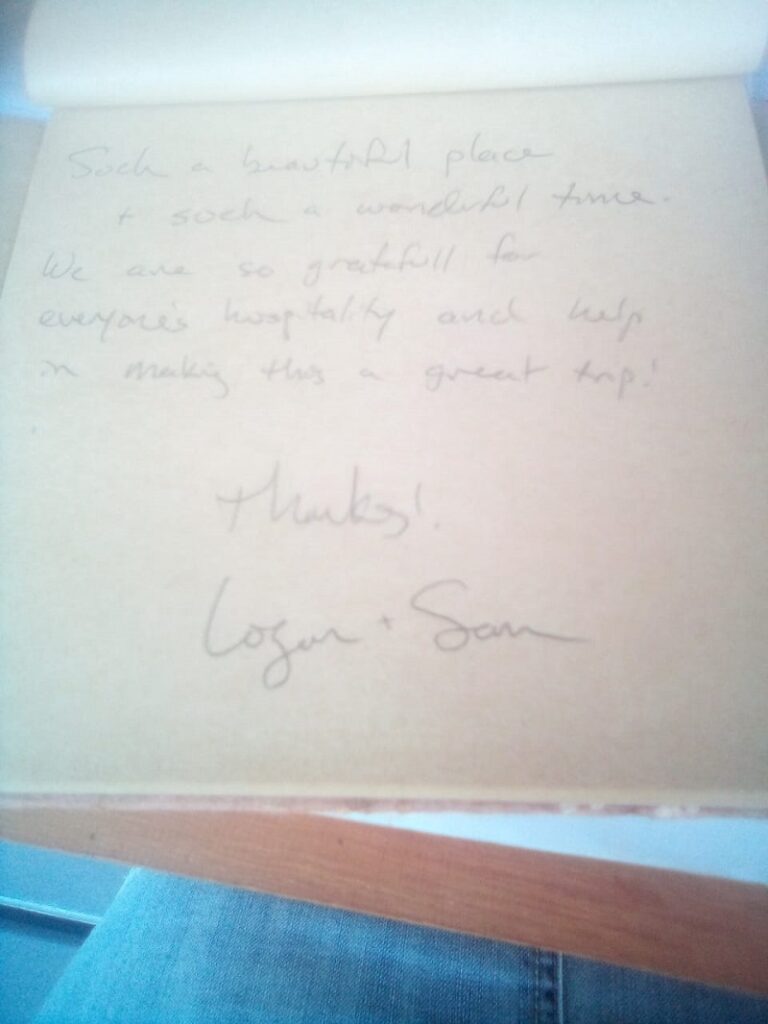 Such a beautiful place
+ such a wonderful time.
We are so gratefull for
everyone's hospitality and help
in making this a great trip!
Thanks!
Logan + Sam